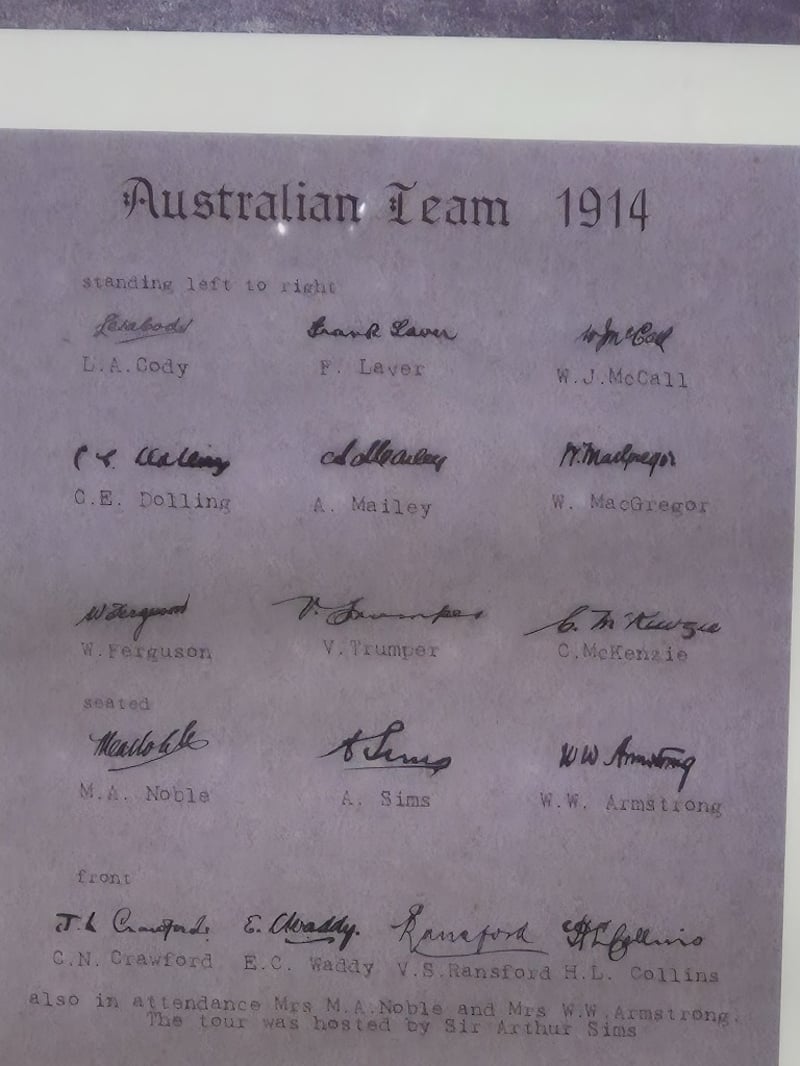 Australian Team 1914
standing left to right
Frank Laver W McCall
L.A.Cody F. Laver W.J.McCall
W.MacGregor
C.E. Dolling A. Mailey W. MacGregor
W Ferguson V. Trumper C. McKenzie
W.Ferguson V.Trumper C.McKenzie
seated
A Sims WW Armstrong
M.A. Noble A. Sims W.W. Armstrong
front
Crawford. E. C Waddy. Ransford H L Collins
C.N. Crawford E.C. Waddy V.S.Ransford H.L. Collins
also in attendance Mrs M.A.Noble and Mrs W.W.Armstrong.
The tour was hosted by Sir Arthur Sims